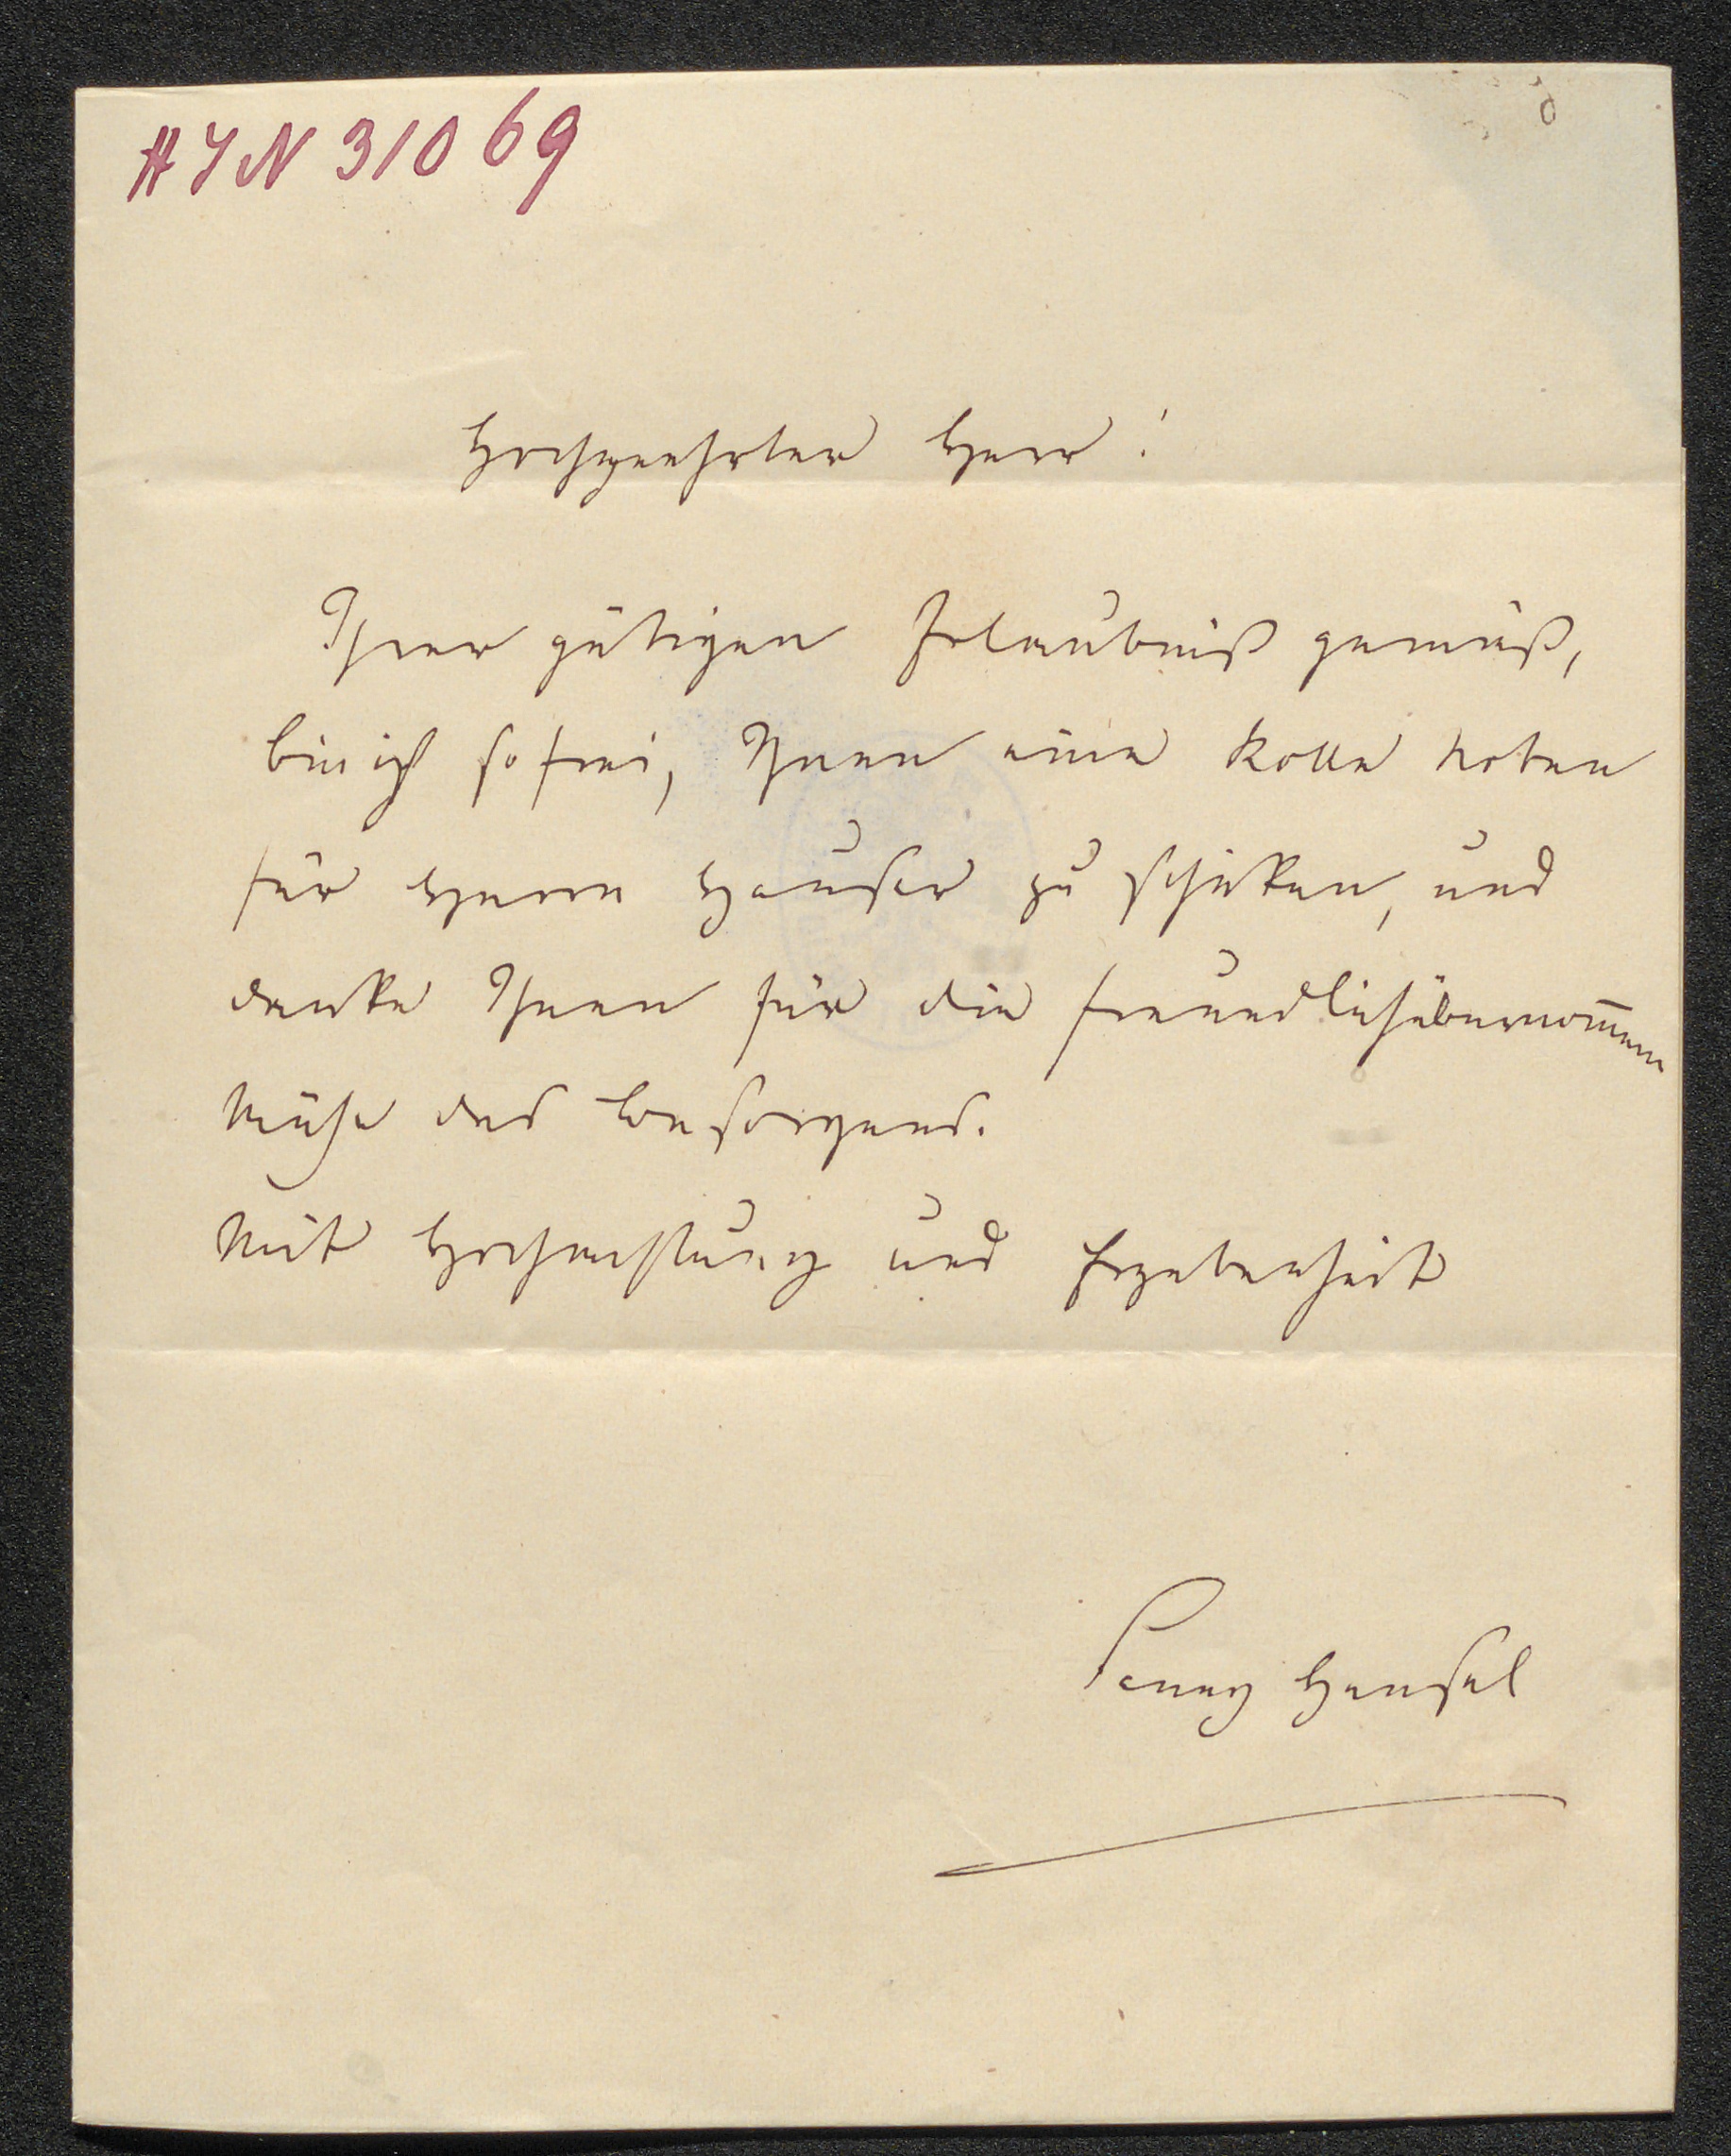 HIN 31069
6
Hochgeehrter Herr!
Ihrer gütigen Erlaubniß gemäß,
bin ich so frei, Ihnen eine Rolle Noten
für Herrn Hauser zu schicken, und
danke Ihnen für die freundlich übernom̅ene
Mühe des Besorgens.
Mit Hochachtung und Ergebenheit
Fanny Hensel